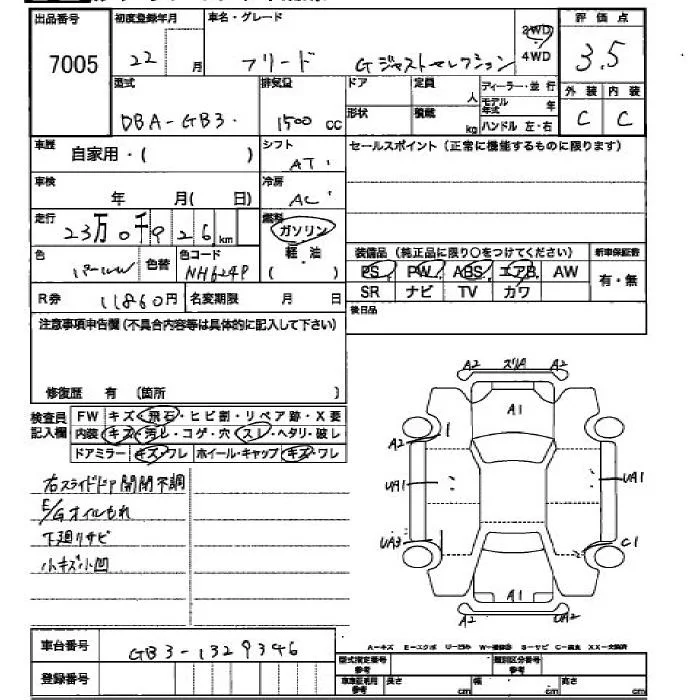 出品番号 初度登録年月 車名・グレード 2WD 評価点
7005 22 月 フリード Gジャストセレクション 4WD 3.5
型式 排気量 ドア 定員 人 ディーラー・並行 外装 内装
DBA-GB3 1500 cc 形状 積載 kg モデル年式 年 C C
ハンドル 左・右
車歴 自家用・( ) シフト AT セールスポイント(正常に機能するものに限ります)
車検 年 月( 日) 冷房 AC
走行 23万0千926km 燃料 ガソリン
軽油
( )
色 パール 色替 色コード NH624P
装備品(純正品に限り○をつけてください) 新車保証書
PS PW ABS エアB AW 有・無
SR ナビ TV カワ
R券 11860円 名変期限 月 日 後日品
注意事項申告欄(不具合内容等は具体的に記入して下さい)
修復歴 有 〔箇所 〕
検査員記入欄 FW キズ・飛石・ヒビ割・リペア跡・X要
内装 キズ・汚レ・コゲ・穴・スレ・ヘタリ・破レ
ドアミラー キズ・ワレ ホイール・キャップ キズ・ワレ
右スライドドア開閉不調
E/Gオイルもれ
下廻りサビ
小キズ小凹
A2 ズリA A2
A1
A2 1
UA1 UA1
UA3 C1
A1
A2 UA2
A-キズ E-エクボ U-凹み W-補修跡 S-サビ C-腐食 XX-交換済
車台番号 GB3-1329346
型式指定番号 参考 類別区分番号 参考
登録番号 車車証明用 参考 長さ cm 幅 cm 高さ cm